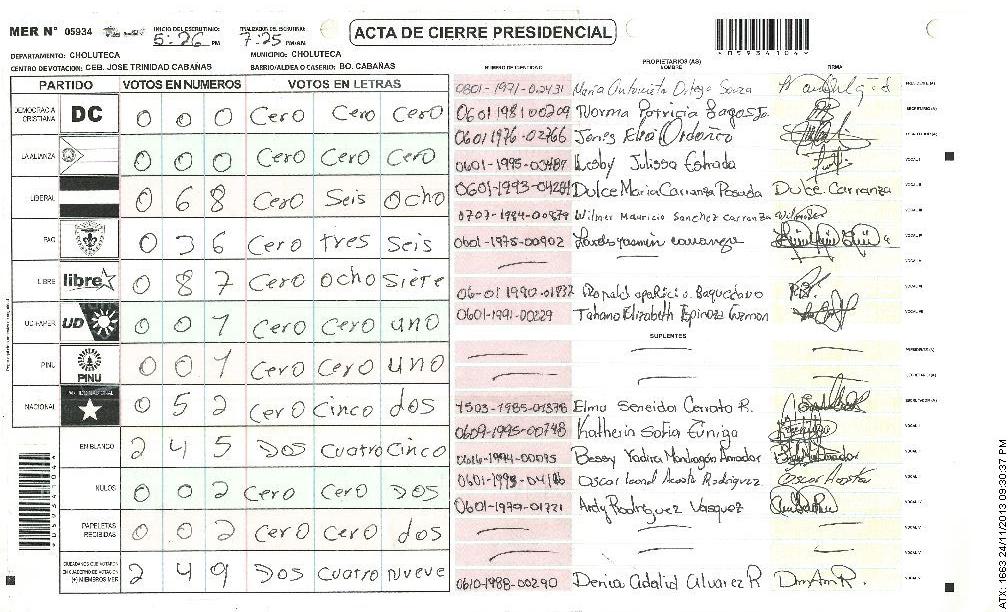 MER N° 05934
INICIO DEL ESCRUTINIO: 5:26 PM
FINALIZACION DEL ESCRUTINIO: 7:25 PM/AM
ACTA DE CIERRE PRESIDENCIAL
*05934104*
DEPARTAMENTO: CHOLUTECA MUNICIPIO: CHOLUTECA
CENTRO DE VOTACION: CEB. JOSE TRINIDAD CABAÑAS BARRIO/ALDEA O CASERIO: BO. CABAÑAS
PARTIDO VOTOS EN NUMEROS VOTOS EN LETRAS
DEMOCRACIA CRISTIANA DC 0 0 0 Cero Cero Cero
LA ALIANZA 0 0 0 Cero Cero Cero
LIBERAL 0 6 8 Cero Seis Ocho
PAC 0 3 6 Cero tres Seis
LIBRE libre 0 8 7 Cero ocho Siete
UD FAPER UD 0 0 1 Cero Cero uno
PINU PINU 0 0 1 Cero Cero uno
NACIONAL 0 5 2 Cero Cinco dos
EN BLANCO 2 4 5 Dos cuatro Cinco
NULOS 0 0 2 Cero Cero Dos
PAPELETAS RECIBIDAS 0 0 2 Cero Cero dos
CIUDADANOS QUE VOTARON EN CUADERNO DE VOTACION (+) MIEMBROS MER 2 4 9 Dos Cuatro Nueve
NUMERO DE IDENTIDAD PROPIETARIOS (AS) NOMBRE FIRMA
0801-1971-02431 Maria Antonieta Ortega Souza PRESIDENTE (A)
0601 1981 00209 Norma Patricia SECRETARIO (A)
0601 1976-02766
0601-1995-00487 Julissa Estrada VOCAL I
0601-1993- Dulce Maria Carranza Posada Dulce Carranza VOCAL II
0707-1984-00879 Wilmer Mauricio Sanchez Carranza VOCAL III
0601-1975-00902
06-01 1990-01837 Ronald aparicio Baquedano
0601-1991-00229 Elizabeth Espinoza Guzman
SUPLENTES
PRESIDENTE (A)
SECRETARIO (A)
1503-1985-01378 Elma Seneida Cerrato R.
0609-1995-00748 Katherin Sofia Zuniga VOCAL I
Bessy Yadira Mondragon Amador
Oscar Leonel Acosta Rodriguez Oscar Acosta
0601-1979-01721 Ardy Rodriguez Vasquez
VOCAL V
0610-1988-00290 Denia Adalid Alvarez R
ATX: 1663 24/11/2013 09:30:37 PM